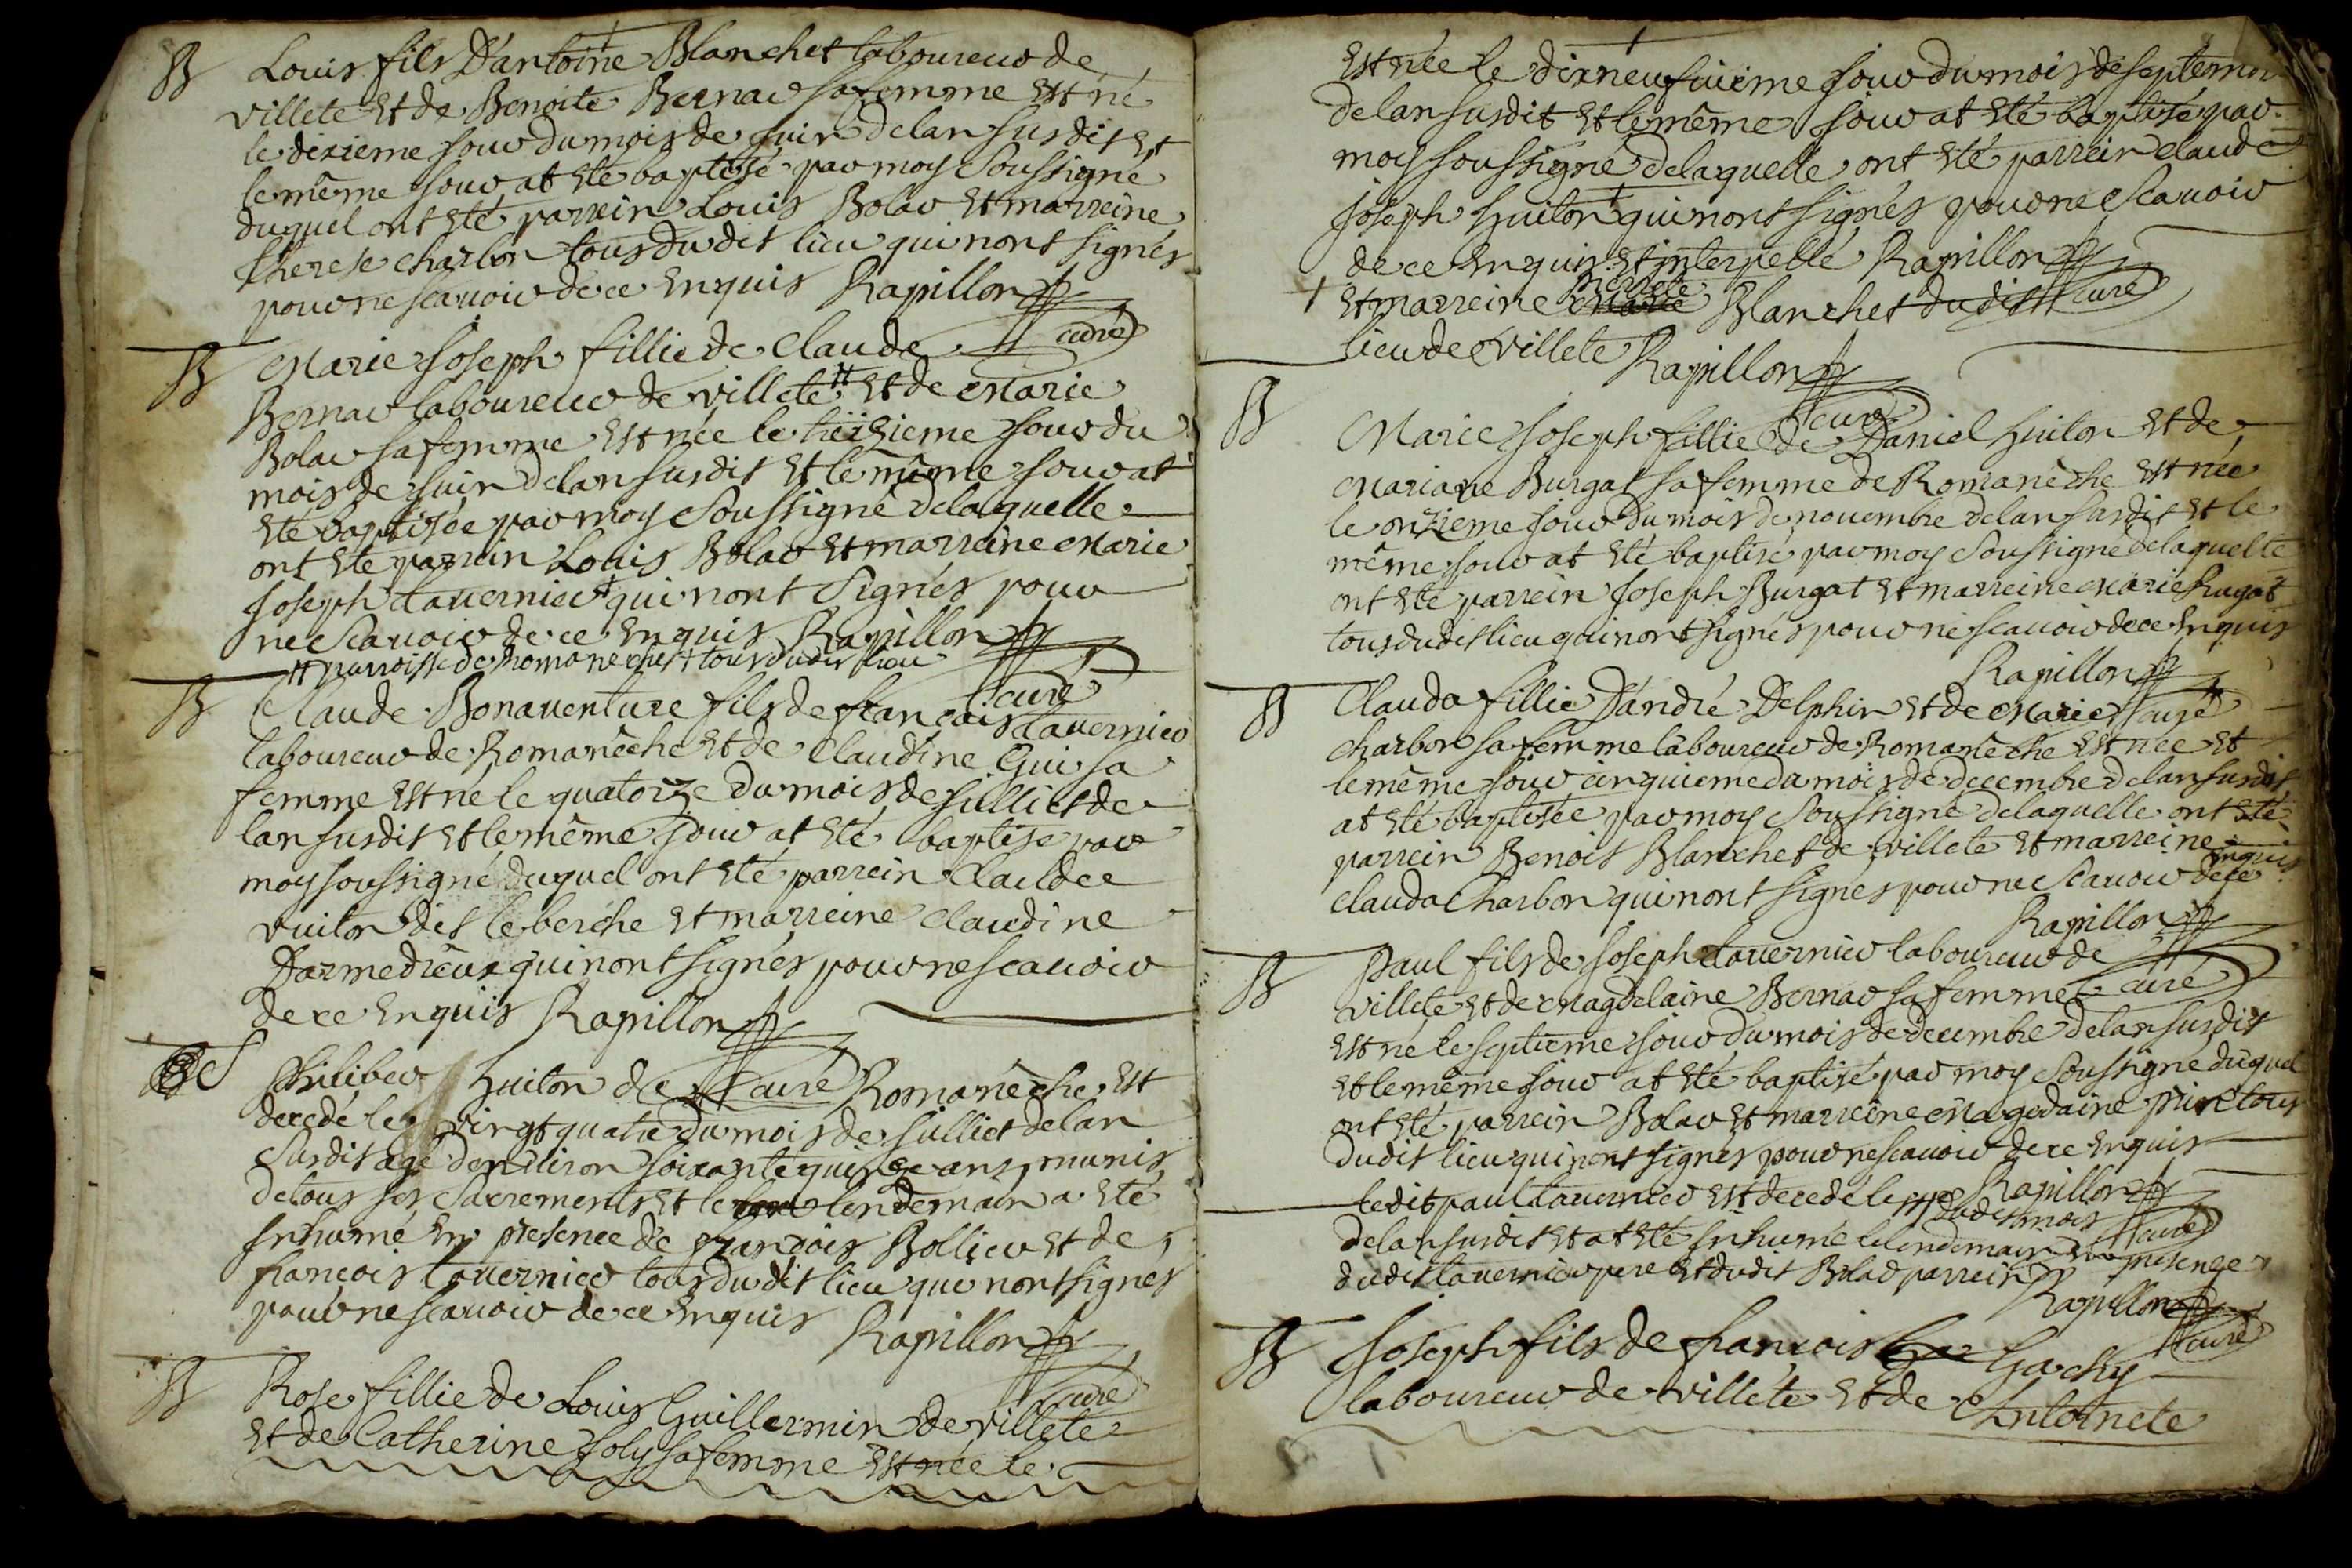 B Louis fils D'antoine Blanchet laboureur de
villete et de Benoite Bernar sa femme est né
le dixieme jour du mois de juin de lan susdit et
le même jour at eté baptisé par moy soussigné
duquel ont eté parrein Louis Bolar et marreine
therese charbon tous du dit lieu qui nont signés
pour ne scauoir de ce enquis Rapillon
curé
B Marie Joseph fillie de Claude
Bernar laboureur de villete # et de Marie
Bolar sa femme est née le treizieme jour du
mois de juin de lan susdit et le même jour at
eté baptisée par moy soussigné de laquelle
ont eté parrein Louis Bolar et marreine Marie
Joseph tauernier + qui nont signés pour
ne scauoir de ce enquis Rapillon
# parroisse de Romaneche + tous dudit lieu
curé
B Claude Bonauenture fils de francois tauernier
laboureur de Romanêche et de Claudine Gui sa
femme est né le quatorze du mois de julliet de
lan susdit et le même jour at eté baptisé par
moy soussigné duquel ont eté parrein Claude
vuiton dit le berche et marreine Claudine
Darmedieux qui nont signés pour ne scauoir
de ce enquis Rapillon
curé
S Philiber huiton de Romanêche est
decedé le vingt quatre du mois de julliet de lan
susdit agé denuiron soixante quinze ans, munis
de tous ses sacrements et le lendemain a eté
inhumé en presence de francois Bollier et de
francois tauernier tous du dit lieu qui nont signés
pour ne scauoir de ce enquis
Rapillon
curé
B Rose fillie de Louis Guillermin de villete
et de Catherine Joly sa femme est née le
est née le dixneufuieme jour du mois de septembre
de lan susdit et le même jour at eté baptisé par
moy soussigné de laquelle ont eté parrein claude
joseph huiton + qui nont signés pour ne scauoir
de ce enquis et interpellé Rapillon
curé
+ et marreine pierrete Blanchet du dit
lieu de villete Rapillon
curé
B Marie Joseph fillie de Daniel huiton et de
Mariane Burgat sa femme de Romanêche est née
le onzieme jour du mois de nouembre de lan susdit et le
même jour at eté baptisé par moy soussigné de laquelle
ont eté parrein Joseph Burgat et marreine Marie
tous dudit lieu qui nont signés pour ne scauoir de ce enquis
Rapillon
curé
B Clauda fillie D'andré Delphin et de Marie
charbon sa femme laboureur de Romanêche est née et
le même jour cinquieme du mois de decembre de lan susdit
at eté baptisée par moy soussigné de laquelle ont eté
parrein Benoit Blanchet de villete et marreine
clauda charbon qui nont signés pour ne scauoir de ce enquis
Rapillon
curé
B Paul fils de joseph tauernier laboureur de
villete et de Magdelaine Bernar sa femme
est né le septieme jour du mois de decembre de lan susdit
et le même jour at eté baptisé par moy soussigné duquel
ont eté parrein Bolar et marreine Magdelaine tous
dudit lieu qui nont signés pour ne scauoir de ce enquis
Rapillon
curé
ledit paul tauernier est decedé le dudit mois
de lan susdit et at eté inhumé le lendemain en presence
dudit tauernier pere et dudit Bolar parrein
Rapillon
curé
B Joseph fils de francois Gachy
laboureur de villete et de Antoinete